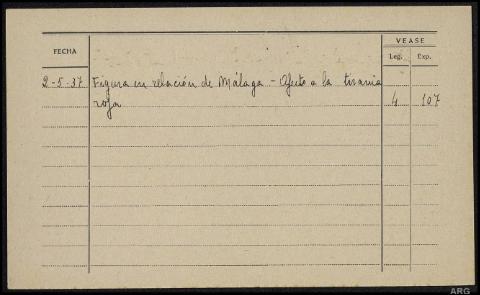 VEASE
FECHA
Leg. Exp.
2-5-37 Figura en relación de Málaga - Afecto a la tirania
roja 4 107
ARG